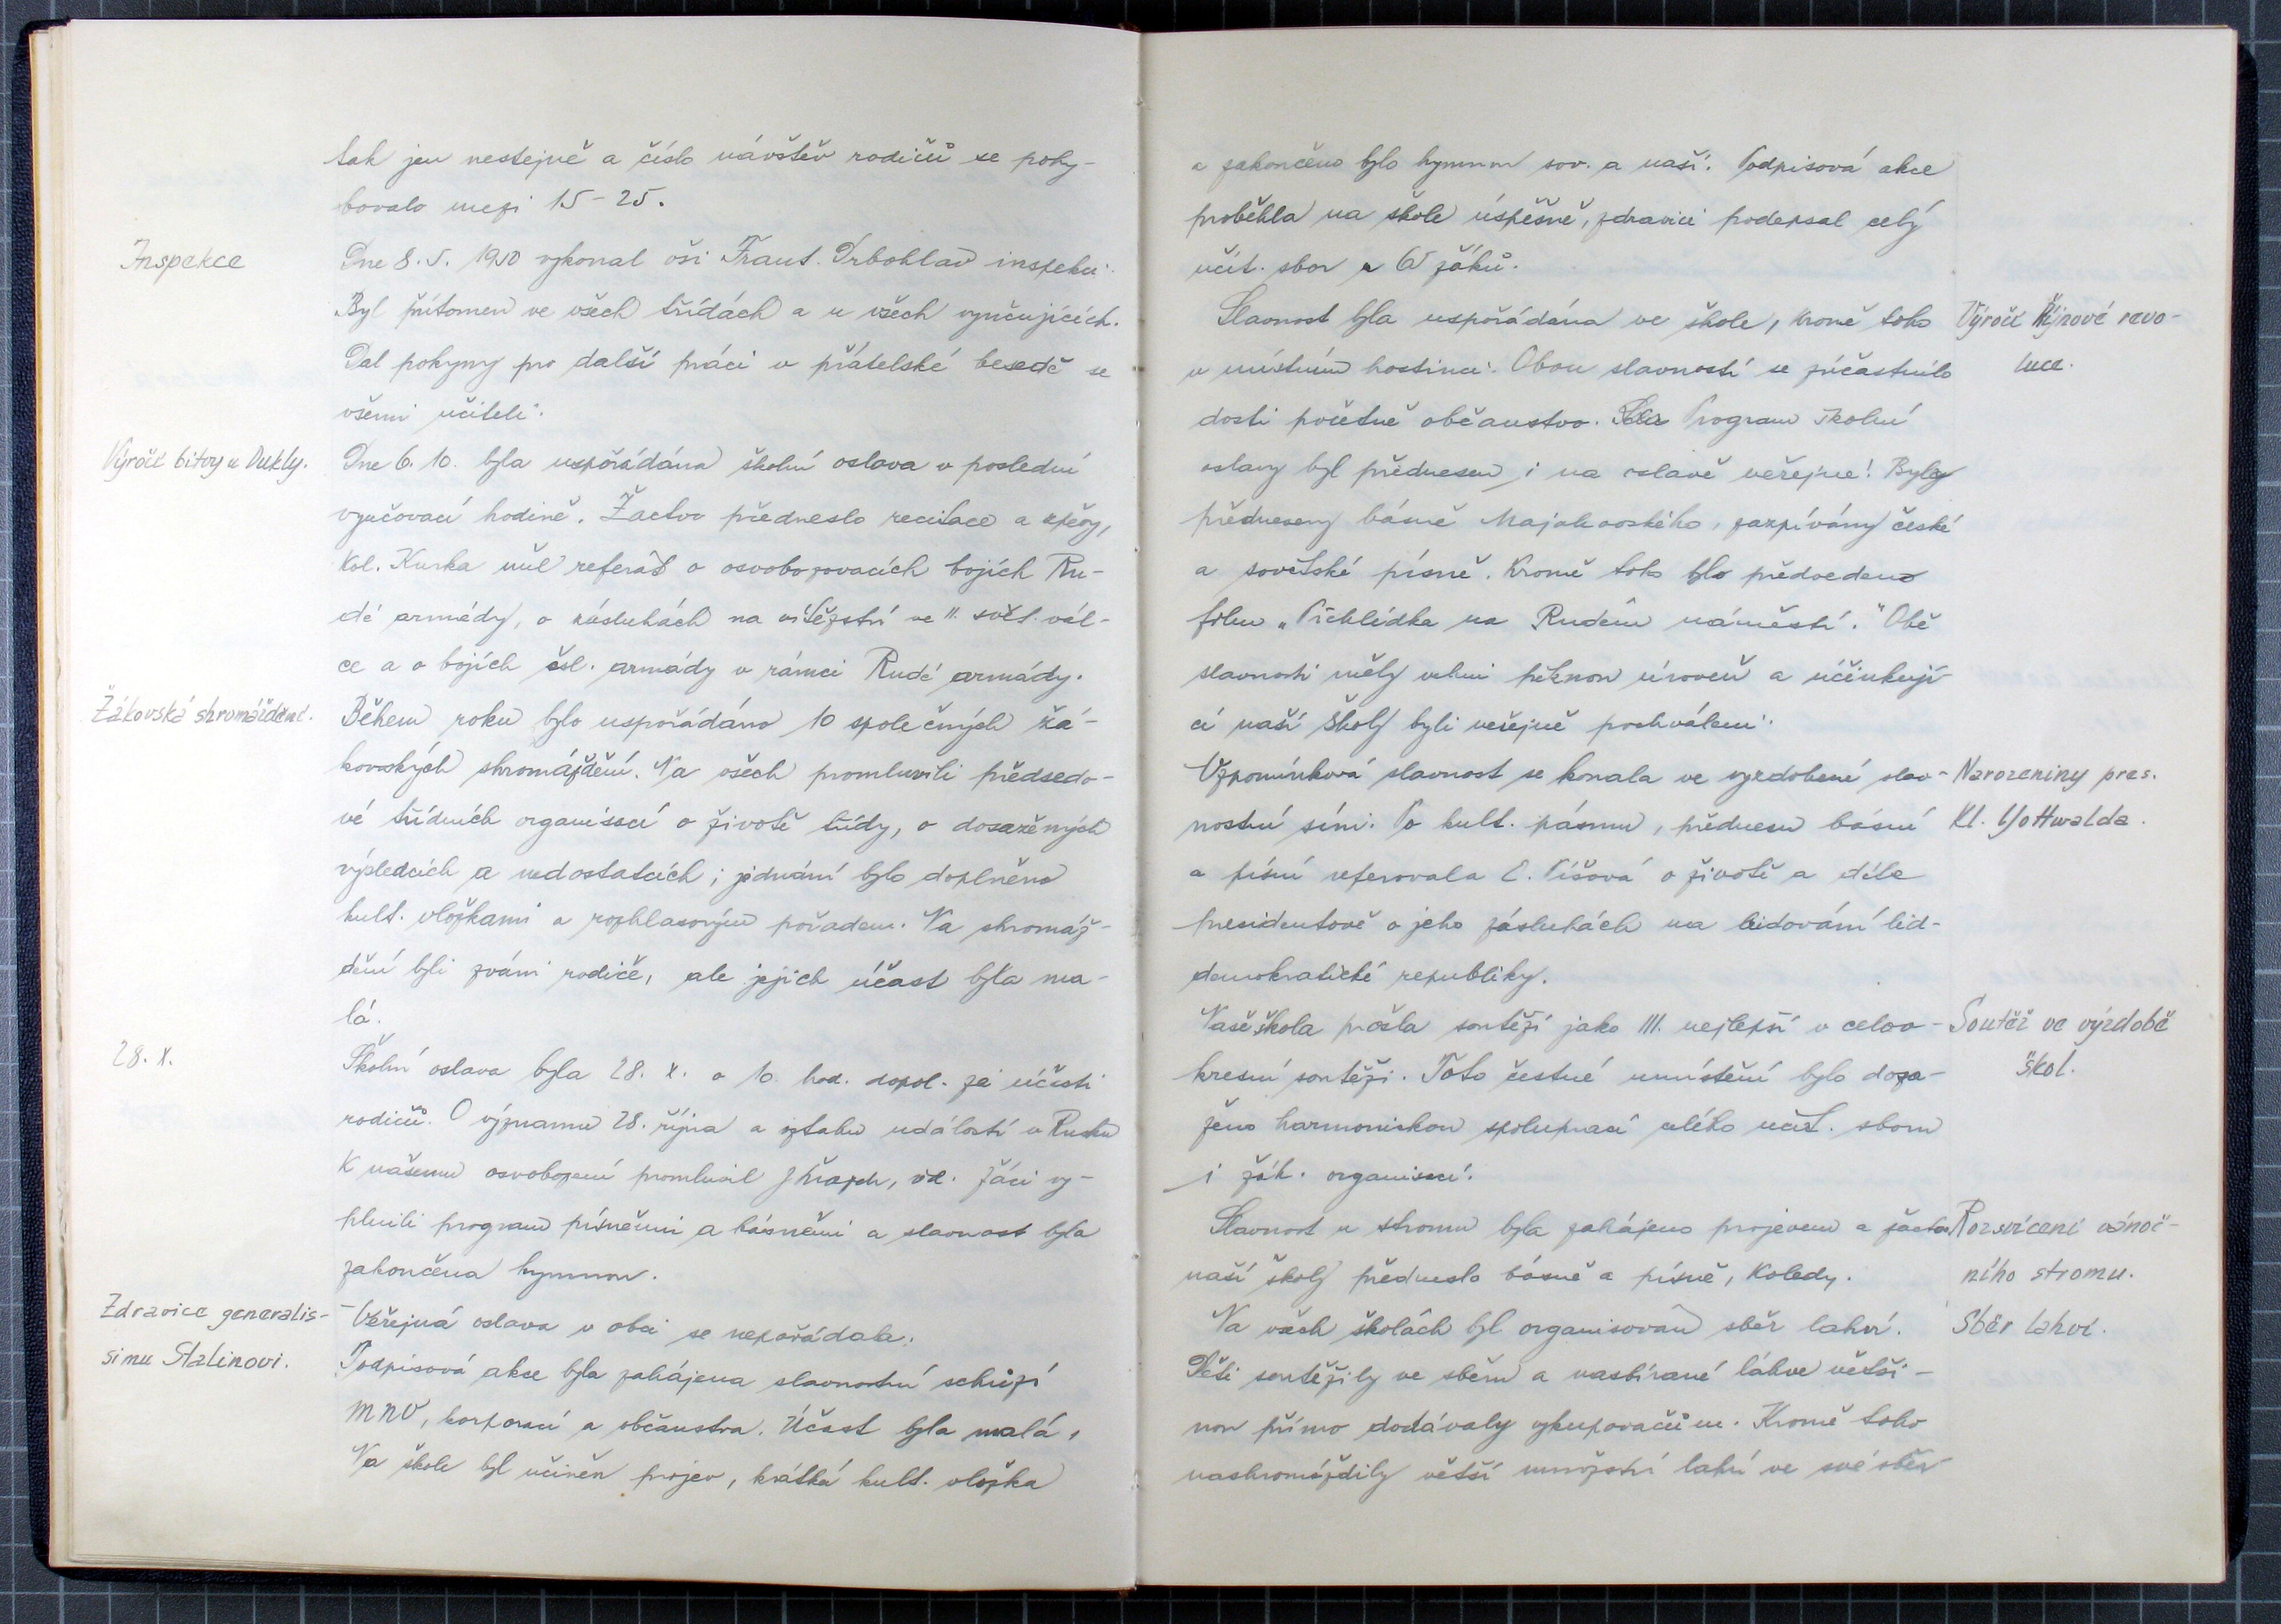 tak jen nestejně a číslo návštěv rodičů se pohy-
bovalo mezi 15-25.
Inspekce
Dne 8. 5. 1950 vykonal oši Frant. Drbohlav inspekci.
Byl přítomen ve všech třídách a u všech vyučujících.
Dal pokyny pro další práci v přátelské besedě se
všemi učiteli.
Výročí bitvy u Dukly.
Dne 6. 10. byla uspořádána školní oslava v poslední
vyučovací hodině. Žactvo předneslo recitace a zpěvy,
kol. Kurka měl referát o osvobozovacích bojích Ru-
dé armády, o zásluhách na vítězství ve II. svět. vál-
ce a o bojích čsl. armády v rámci Rudé armády.
Žákovská shromáždění.
Během roku bylo uspořádáno 10 společných žá-
kovských shromáždění. Na všech promluvili předsedo-
vé třídních organisací o životě třídy, o dosažených
výsledcích a nedostatcích; jednání bylo doplněno
kult. vložkami a rozhlasovým pořadem. Na shromáž-
dění byli zváni rodiče, ale jejich účast byla ma-
lá.
28. X.
Školní oslava byla 28. X. o 10. hod. dopol. za účasti
rodičů. O významu 28. října a vztahu událostí v Rusku
k našemu osvobození promluvil řed. žáci vy-
plnili program písněmi a básněmi a slavnost byla
zakončena hymnou.
Veřejná oslava v obci se nepořádala.
Zdravice generalis-
simu Stalinovi.
Podpisová akce byla zahájena slavnostní schůzí
MNV, korporací a občanstva. Účast byla malá,
Na škole byl učiněn projev, krátká kult. vložka
a zakončeno bylo hymnou sov. a naší. Podpisová akce
proběhla na škole úspěšně, zdravici podepsal celý
učit. sbor a 65 žáků.
Výročí Říjnové revo-
luce.
Slavnost byla uspořádána ve škole, kromě toho
v místním hostinci. Obou slavností se zúčastnilo
dosti početně občanstvo. Program školní
oslavy byl přednesen i na oslavě veřejné! Byly
předneseny básně Majakovského, zazpívány české
a sovětské písně. Kromě toho bylo předvedeno
film „Přehlídka na Rudém náměstí." Obě
slavnosti měly velmi pěknou úroveň a účinkují-
cí naší školy byli veřejně pochváleni.
Narozeniny pres.
Kl. Gottwalda.
Vzpomínková slavnost se konala ve vyzdobené slav-
nostní síni. Po kult. pásmu, přednesu básní
a písní referovala E. Píšová o životě a díle
presidentově o jeho zásluhách na budování lid-
demokratické republiky.
Soutěž ve výzdobě
škol.
Naše škola prošla soutěží jako III. nejlepší v celoo-
kresní soutěži. Toto čestné umístění bylo dosa-
ženo harmonickou spoluprací celého učit. sboru
i žák. organisací.
Rozsvícení vánoč-
ního stromu.
Slavnost u stromu byla zahájena projevem a žactvo
naší školy předneslo básně a písně, koledy.
Sběr lahví.
Na všech školách byl organisován sběr lahví.
Děti soutěžily ve sběru a nasbírané láhve větši-
nou přímo dodávaly vykupovačům. Kromě toho
nashromáždily větší množství lahví ve své sběr